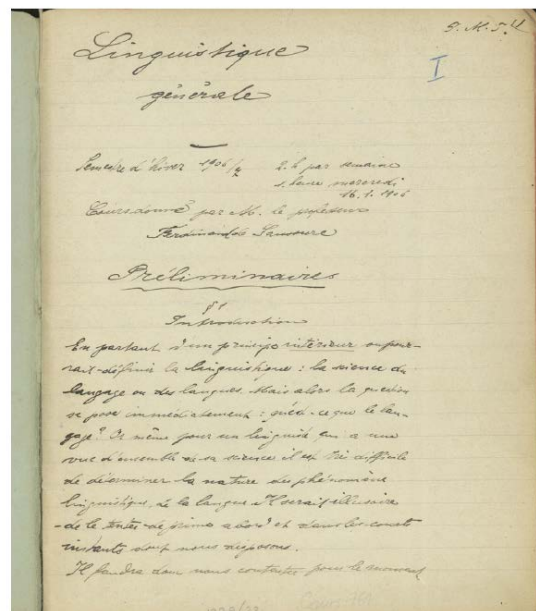 Linguistique
générale
I
Semestre d'hiver 1906/7
2 h par semaine
1. leçon mercredi
16.1.1906
Cours donné par M. le professeur
Ferdinand de Saussure
Préliminaires
§ 1
Introduction
En partant d'un principe intérieur on pour-
rait définir la linguistique : la science du
langage ou des langues. Mais alors la question
se pose immédiatement : qu'est-ce que le lan-
gage? Or même pour un linguiste qui a une
vue d'ensemble de sa science il est très difficile
de déterminer la nature des phénomènes
linguistiques, de la langue. Il serait illusoire
de le tenter de prime abord et dans les courts
instants dont nous disposons.
Il faudra donc nous contenter pour le moment